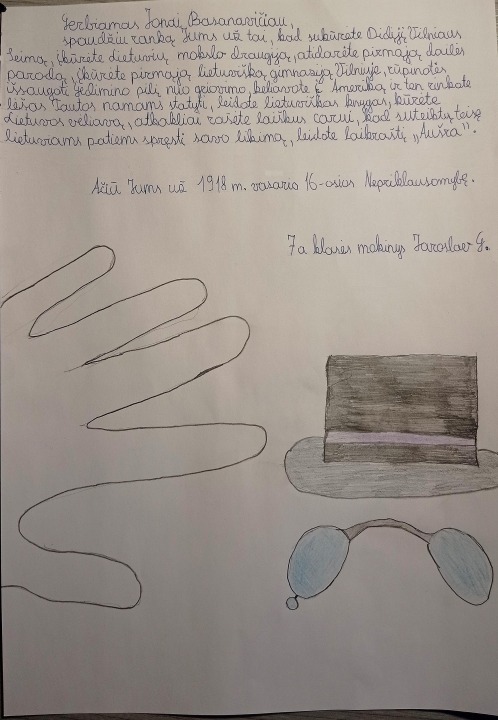 Gerbiamas Jonai Basanavičiau,
spaudžiu ranką Jums už tai, kad subūrėte Didįjį Vilniaus
Seimą, įkūrėte lietuvių mokslo draugiją, atidarėte pirmąją dailės
parodą, įkūrėte pirmąją lietuvišką gimnaziją Vilniuje, rūpinotės
išsaugoti Gedimino pilį nuo griovimo, keliavote į Ameriką ir ten rinkote
lėšas Tautos namams statyti, leidote lietuviškas knygas, kūrėte
lietuvos vėliavą, atkakliai rašėte laiškus carui, kad suteiktų teisę
lietuviams patiems spręsti savo likimą, leidote laikraštį „Aušra".
Ačiū Jums už 1918 m. vasario 16-osios Nepriklausomybę.
7a klasės mokinys Jaroslav G.